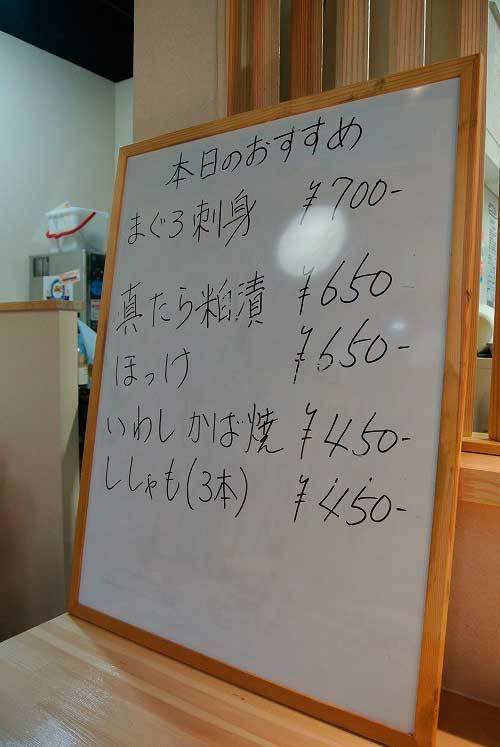 本日のおすすめ
まぐろ刺身 ¥700-
真たら粕漬 ¥650
ほっけ ¥650-
いわしかば焼 ¥450-
ししゃも(3本) ¥450-